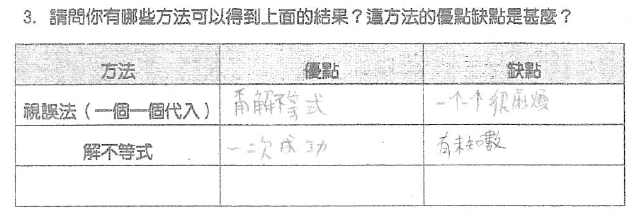 3. 請問你有哪些方法可以得到上面的結果？這方法的優點缺點是甚麼？
方法 優點 缺點
視誤法（一個一個代入） 不用解不等式 一个个很麻煩
解不等式 一次成功 有未知數